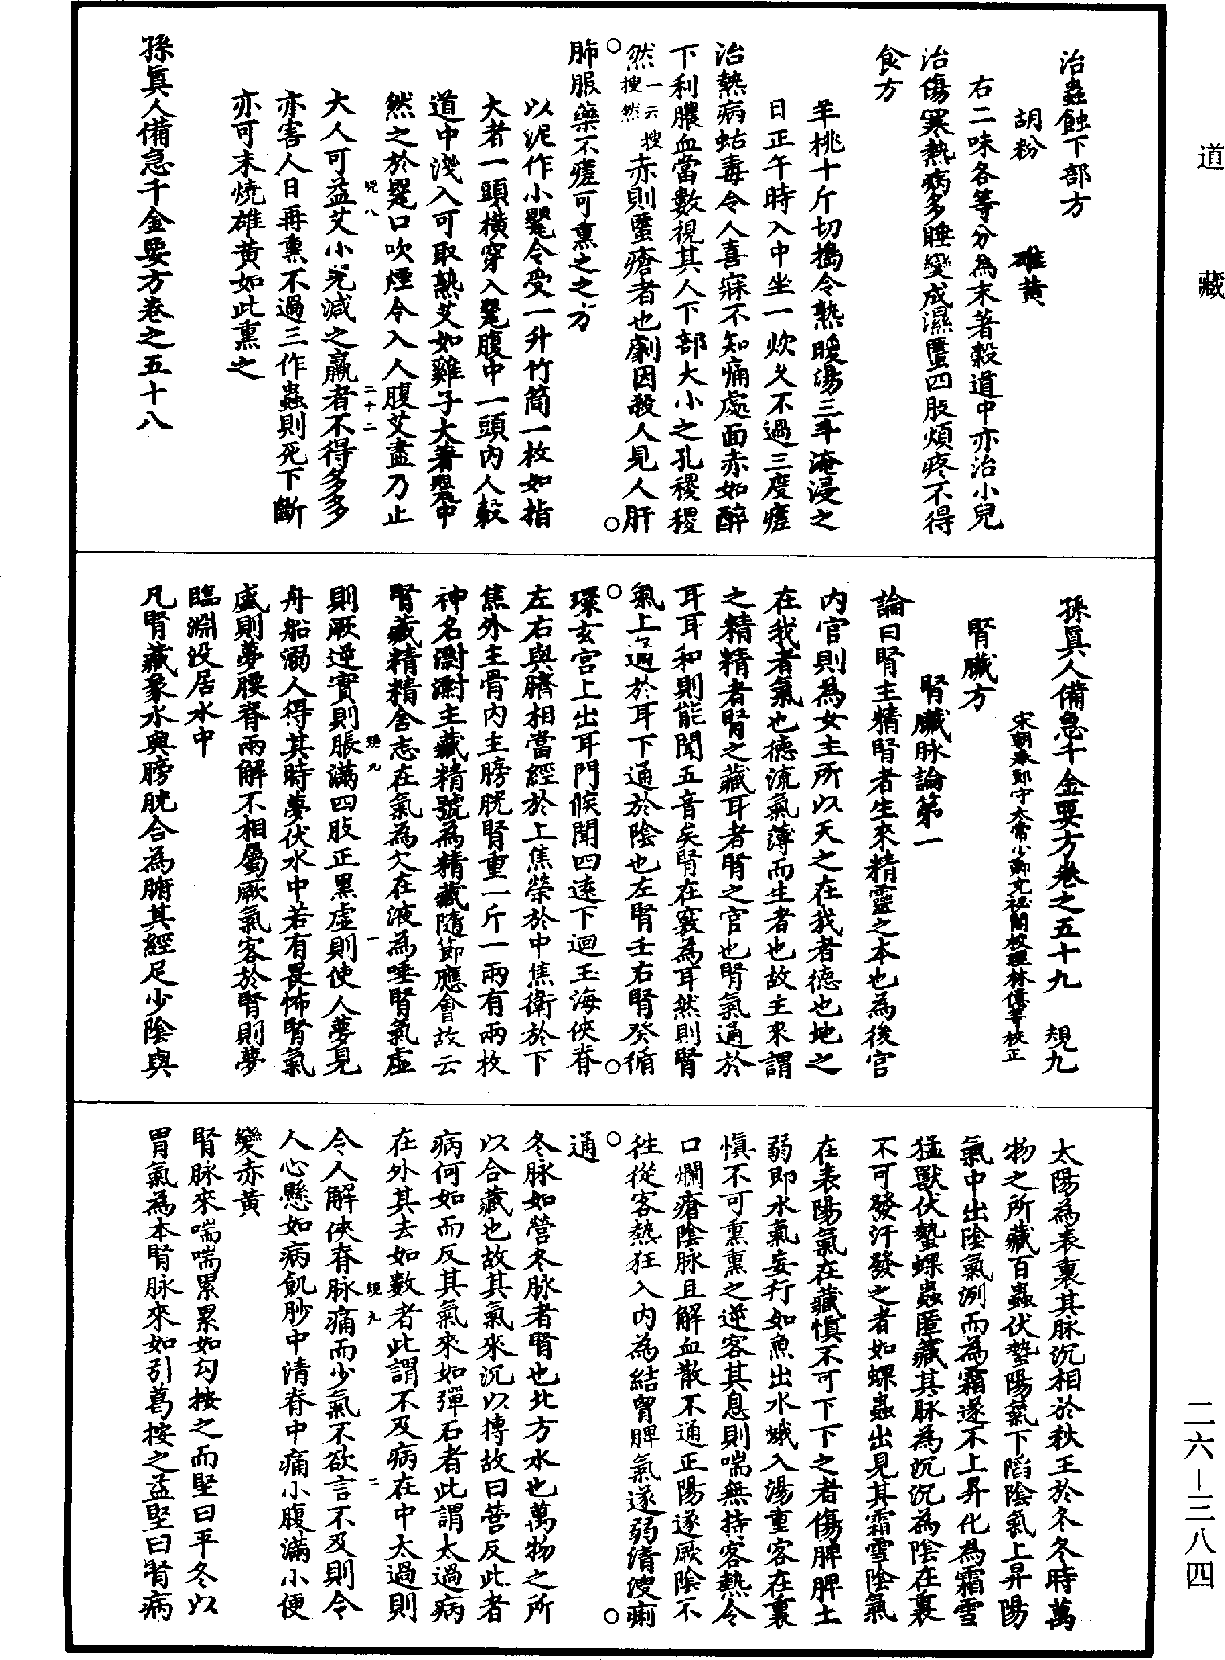 道藏
治蟲蝕下部方
胡粉　雄黃
右二味各等分為末著穀道中亦治小兒
治傷寒熱病多睡變成濕䘌四肢煩疼不得
食方
羊桃十斤切搗令熟暖湯三斗淹浸之
日正午時入中坐一炊久不過三度瘥
治熱病蛄毒令人喜寐不知痛處面赤如醉
下利膿血當數視其人下部大小之孔稷稷
然一云搜搜然赤則䘌瘡者也劇因殺人見人肝
肺服藥不瘥可熏之之方
以泥作小甖令受一升竹筒一枚如指
大者一頭橫穿入甖腹中一頭內人穀
道中淺入可取熟艾如雞子大著甖中
然之於甖口吹煙令入人腹艾盡乃止
大人可益艾小兒減之羸者不得多多
亦害人日再熏不過三作蟲則死下斷
亦可末燒雄黃如此熏之
孫真人備急千金要方卷之五十八
孫真人備急千金要方卷之五十九　規九
宋朝奉郎守太常少卿充祕閣校理林億等校正
腎臟方
腎臟脉論第一
論曰腎主精腎者生來精靈之本也為後宮
內官則為女主所以天之在我者德也地之
在我者氣也德流氣薄而生者也故生來謂
之精精者腎之藏耳者腎之官也腎氣通於
耳耳和則能聞五音矣腎在竅為耳然則腎
氣上通於耳下通於陰也左腎壬右腎癸循
環玄宮上出耳門候聞四遠下迴玉海俠脊
左右與臍相當經於上焦榮於中焦衛於下
焦外主骨內主膀胱腎重一斤一兩有兩枚
神名㵝㵝主藏精號為精藏隨節應會故云
腎藏精精舍志在氣為欠在液為唾腎氣虛
則厥逆實則脹滿四肢正黑虛則使人夢見
舟船溺人得其時夢伏水中若有畏怖腎氣
盛則夢腰脊兩解不相屬厥氣客於腎則夢
臨淵沒居水中
凡腎臟象水與膀胱合為腑其經足少陰與
太陽為表裏其脉沉相於秋王於冬冬時萬
物之所藏百蟲伏蟄陽氣下陷陰氣上昇陽
氣中出陰氣冽而為霜遂不上昇化為霜雪
猛獸伏蟄蜾蟲匿藏其脉為沉沉為陰在裏
不可發汗發之者如蜾蟲出見其霜雪陰氣
在表陽氣在藏慎不可下下之者傷脾脾土
弱即水氣妄行如魚出水蛾入湯重客在裏
慎不可熏熏之逆客其息則喘無持客熱令
口爛瘡陰脉且解血散不通正陽遂厥陰不
往從客熱狂入內為結胷脾氣遂弱清溲痢
通
冬脉如營冬脉者腎也北方水也萬物之所
以合藏也故其氣來沉以搏故曰營反此者
病何如而反其氣來如彈石者此謂太過病
在外其去如數者此謂不及病在中太過則
令人解㑊脊脉痛而少氣不欲言不及則令
人心懸如病飢䏚中清脊中痛小腹滿小便
變赤黃
腎脉來喘喘累累如勾按之而堅曰平冬以
胃氣為本腎脉來如引葛按之益堅曰腎病
二六—三八四